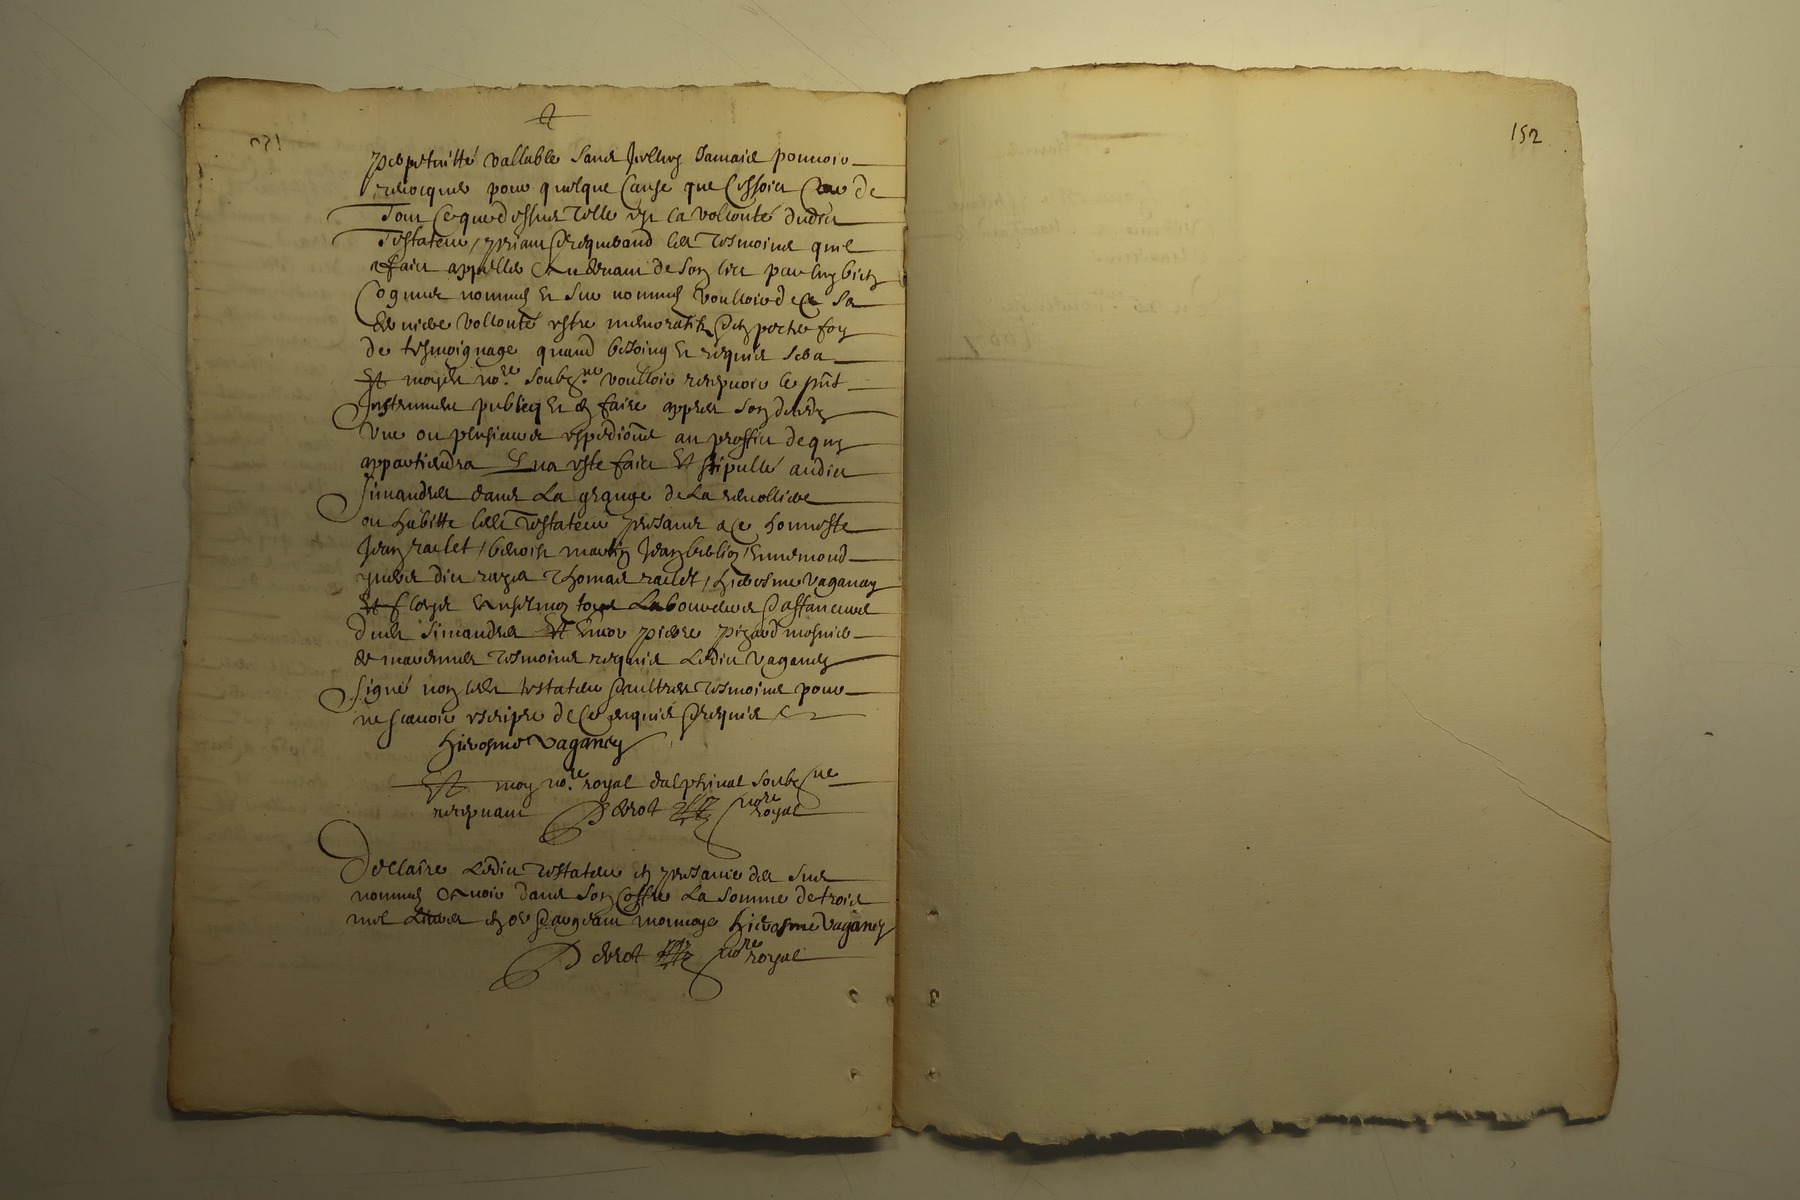 perpetuitté vallable sans icelluy Jamais pouvoir
revocquer pour quelque Cause que Cessoict Car de
Tout Ce que dessus Telle est La vollonté dudict
Testateur priant & requerant les Tesmoins quil
a faict appeller Au devant de son lict par luy bien
Cognus nommes Et sus nommes voulloir de Ce Sa
derniere vollonté estre memoratifz & en porter foy
de tesmoignage quand besoing Et requis sera
Et moydit no.re soubz.ne voulloir recepvoir le pnt
Instrument publicq Et en faire appres son deces
Une ou plusieurs expedions au proffict de quy
appartiendra Qua este faict Et stipullé audict
Simandres dans La grange de La
ou habitte ledict Testateur presants a Ce honneste
Jean raclet, benoist martin Jean Ennemond
dict Thomas raclet, hierosme vaganay
Et tous Laboureurs & affaneurs
dudict Simandres Et Encor pierre mosnier
de marennes Tesmoins requis Ledict vaganay
signé non ledict testateur & aultres Tesmoins pour
ne scavoir escripre de Ce enquis & requis
hierosme vaganey
Et moy no.re royal dalphinal soubz.ne
recepvant Perrot no.re royal
Declaire Ledict Testateur en presance des sus
nommes Avoir dans son Coffre La somme de trois
mil Livres en or & argent monnoye hierosme vaganey
Perrot no.re royal
152